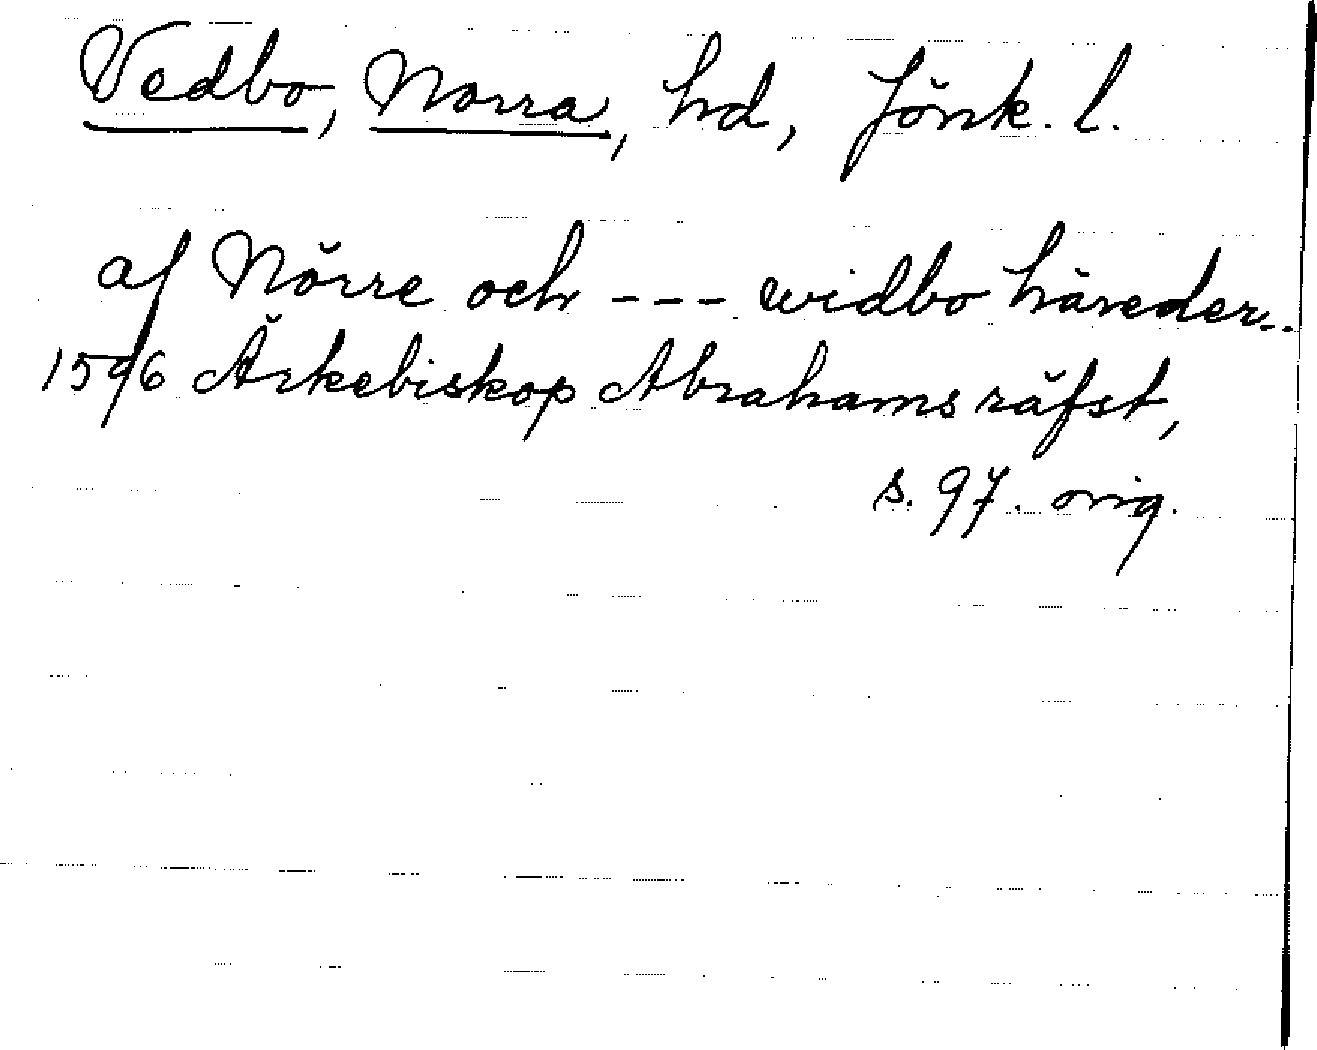 Vedbo, Norra, hd, Jönk. l.
af Nörre och --- widbo häreder..
1596 Ärkebiskop Abrahams räfst,
s. 97. orig.